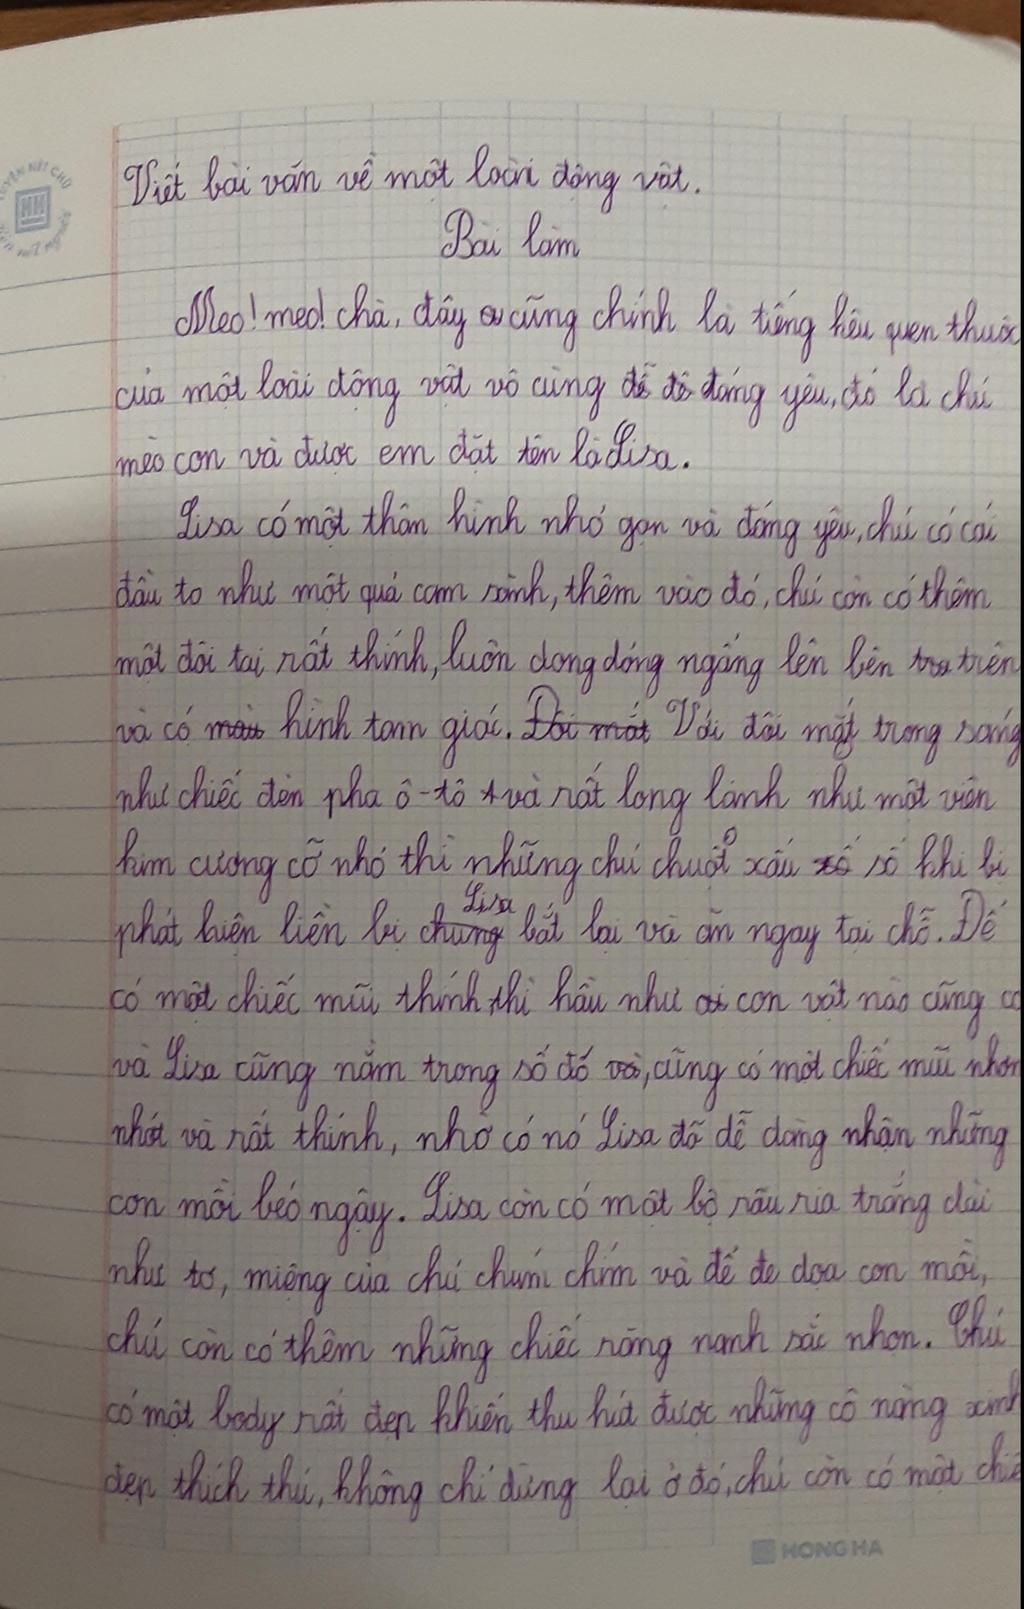 Viết bài văn về một loài động vật.
Bài làm
Meo! meo! chà, đây cũng chính là tiếng kêu quen thuộc
của một loài động vật vô cùng dễ đáng yêu, đó là chú
mèo con và được em đặt tên là Lisa.
Lisa có một thân hình nhỏ gọn và đáng yêu, chú có cái
đầu to như một quả cam sành, thêm vào đó, chú còn có thêm
một đôi tai rất thính, luôn dong dỏng ngẩng lên bên trên
và có hình tam giác. Đôi mắt Với đôi mắt trong sáng
như chiếc đèn pha ô-tô và rất long lanh như một viên
kim cương cỡ nhỏ thì những chú chuột xấu số khi bị
phát hiện liền bị Lisa bắt lại và ăn ngay tại chỗ. Để
có một chiếc mũi thính thì hầu như con vật nào cũng có
và Lisa cũng nằm trong số đó, cũng có một chiếc mũi nhơn
nhớt và rất thính, nhờ có nó Lisa đã dễ dàng nhận những
con mồi béo ngậy. Lisa còn có một bộ râu ria trắng dài
như tơ, miệng của chú chúm chím và để đe dọa con mồi,
chú còn có thêm những chiếc răng nanh sắc nhọn. Chú
có một body rất đẹp khiến thu hút được những cô nàng xinh
đẹp thích thú, không chỉ dừng lại ở đó, chú còn có một chiế
HONG HA
HH